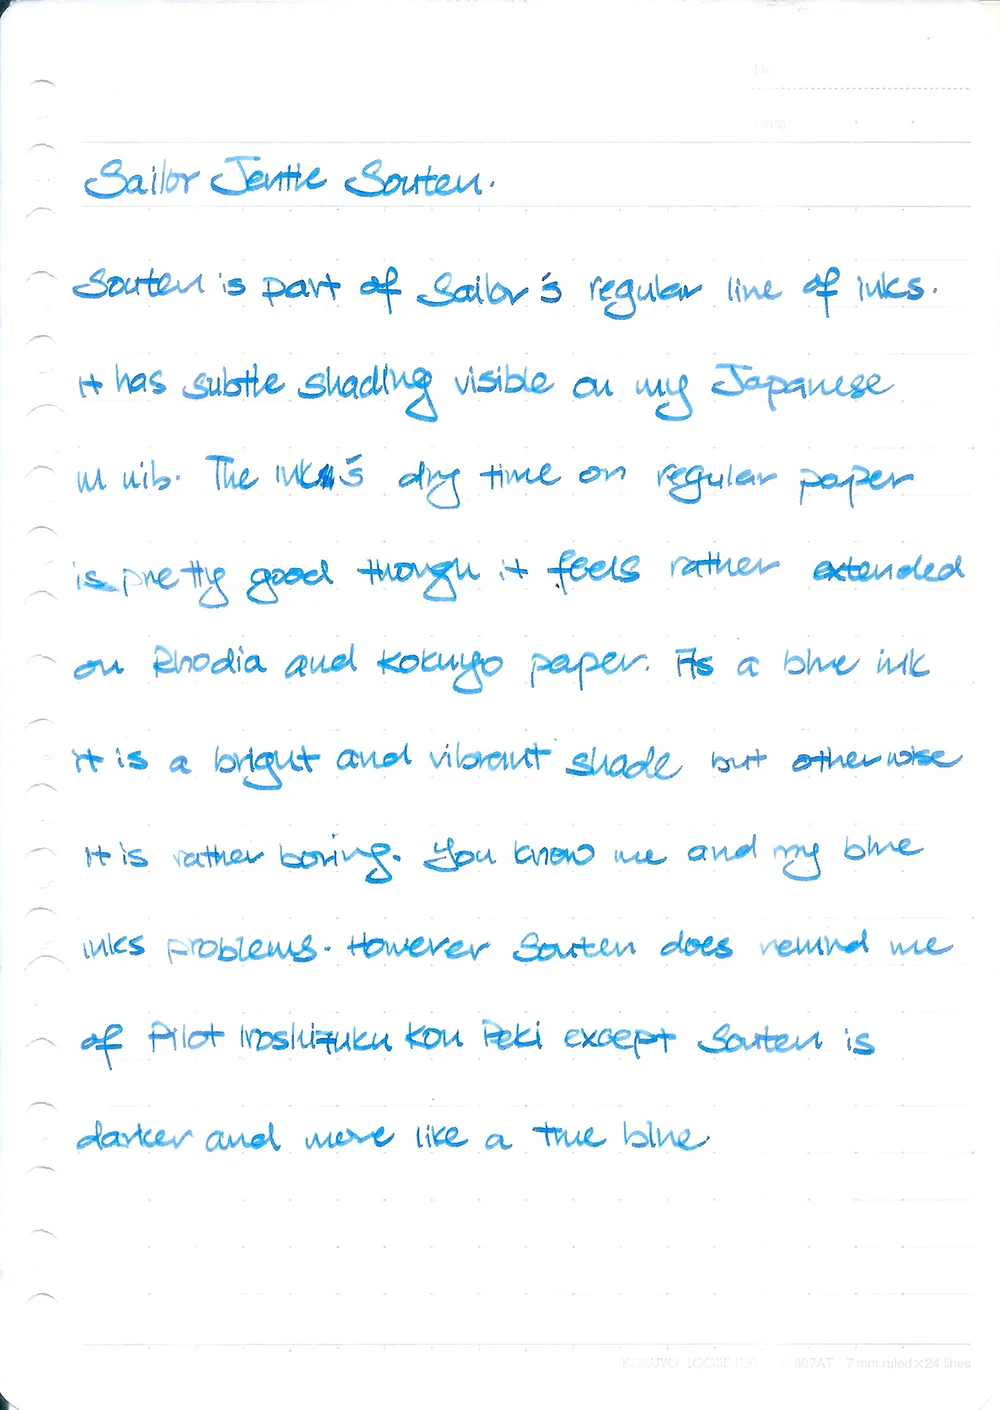 No.
Date
Sailor Jentle Souten.
Souten is part of Sailor's regular line of inks.
It has subtle shading visible on my Japanese
M nib. The ink's dry time on regular paper
is pretty good though it feels rather extended
on Rhodia and Kokuyo paper. As a blue ink
it is a bright and vibrant shade but otherwise
it is rather boring. You know me and my blue
inks problems. However Souten does remind me
of Pilot Iroshizuku Kon Peki except Souten is
darker and more like a true blue.
KOKUYO LOOSE-LEAF 807AT 7 mm ruled×24 lines